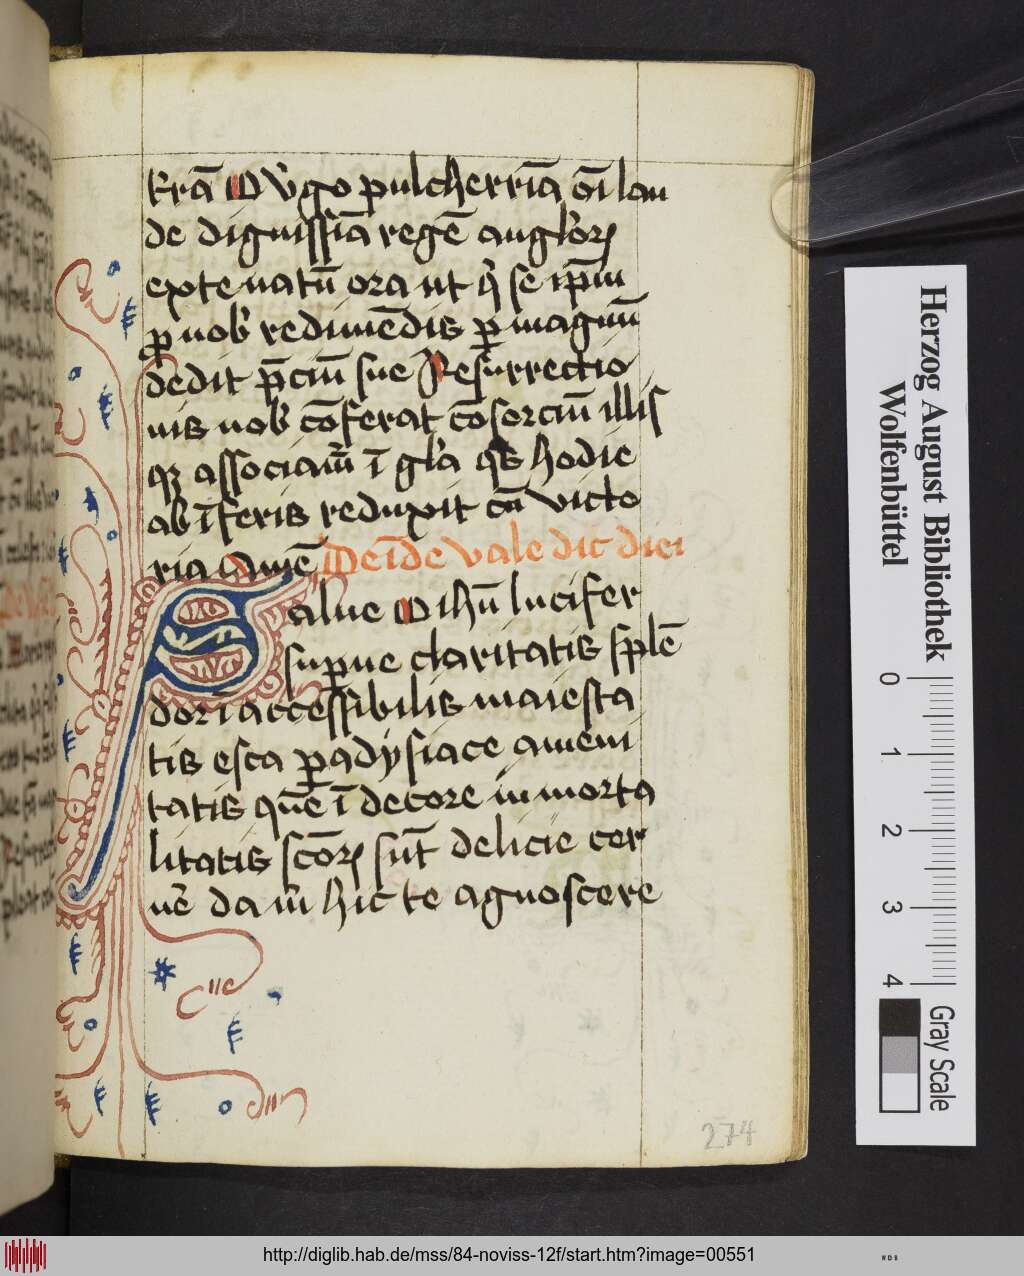 krā O v̾go pulcherrīa ōi lau
de dignissīa regē anglor̄ꝫ
extenatū ora ut q̾ se ip̄m
ꝓ nob̾ redimēdis ꝑ magnū
dedit p̄ciū sue Resurrectio
nis nob̾ cōferat cōsorciū illis
qꝫ associam̄ ī gl̾a q̾s hodie
ab īferis reduxit cū victo
ria Amē Deīde vale dic diei
Salue O ihū lucifer
supne claritatis splē
dor īaccessibilis maiesta
tis esca ꝑadysiace ameni
tatis quē ī decore inmorta
litatis scōrꝫ sūt delicie cer
nē da m̄ hic te agnoscere
274
Herzog August Bibliothek
Wolfenbüttel
0 1 2 3 4
Gray Scale
http://diglib.hab.de/mss/84-noviss-12f/start.htm?image=00551